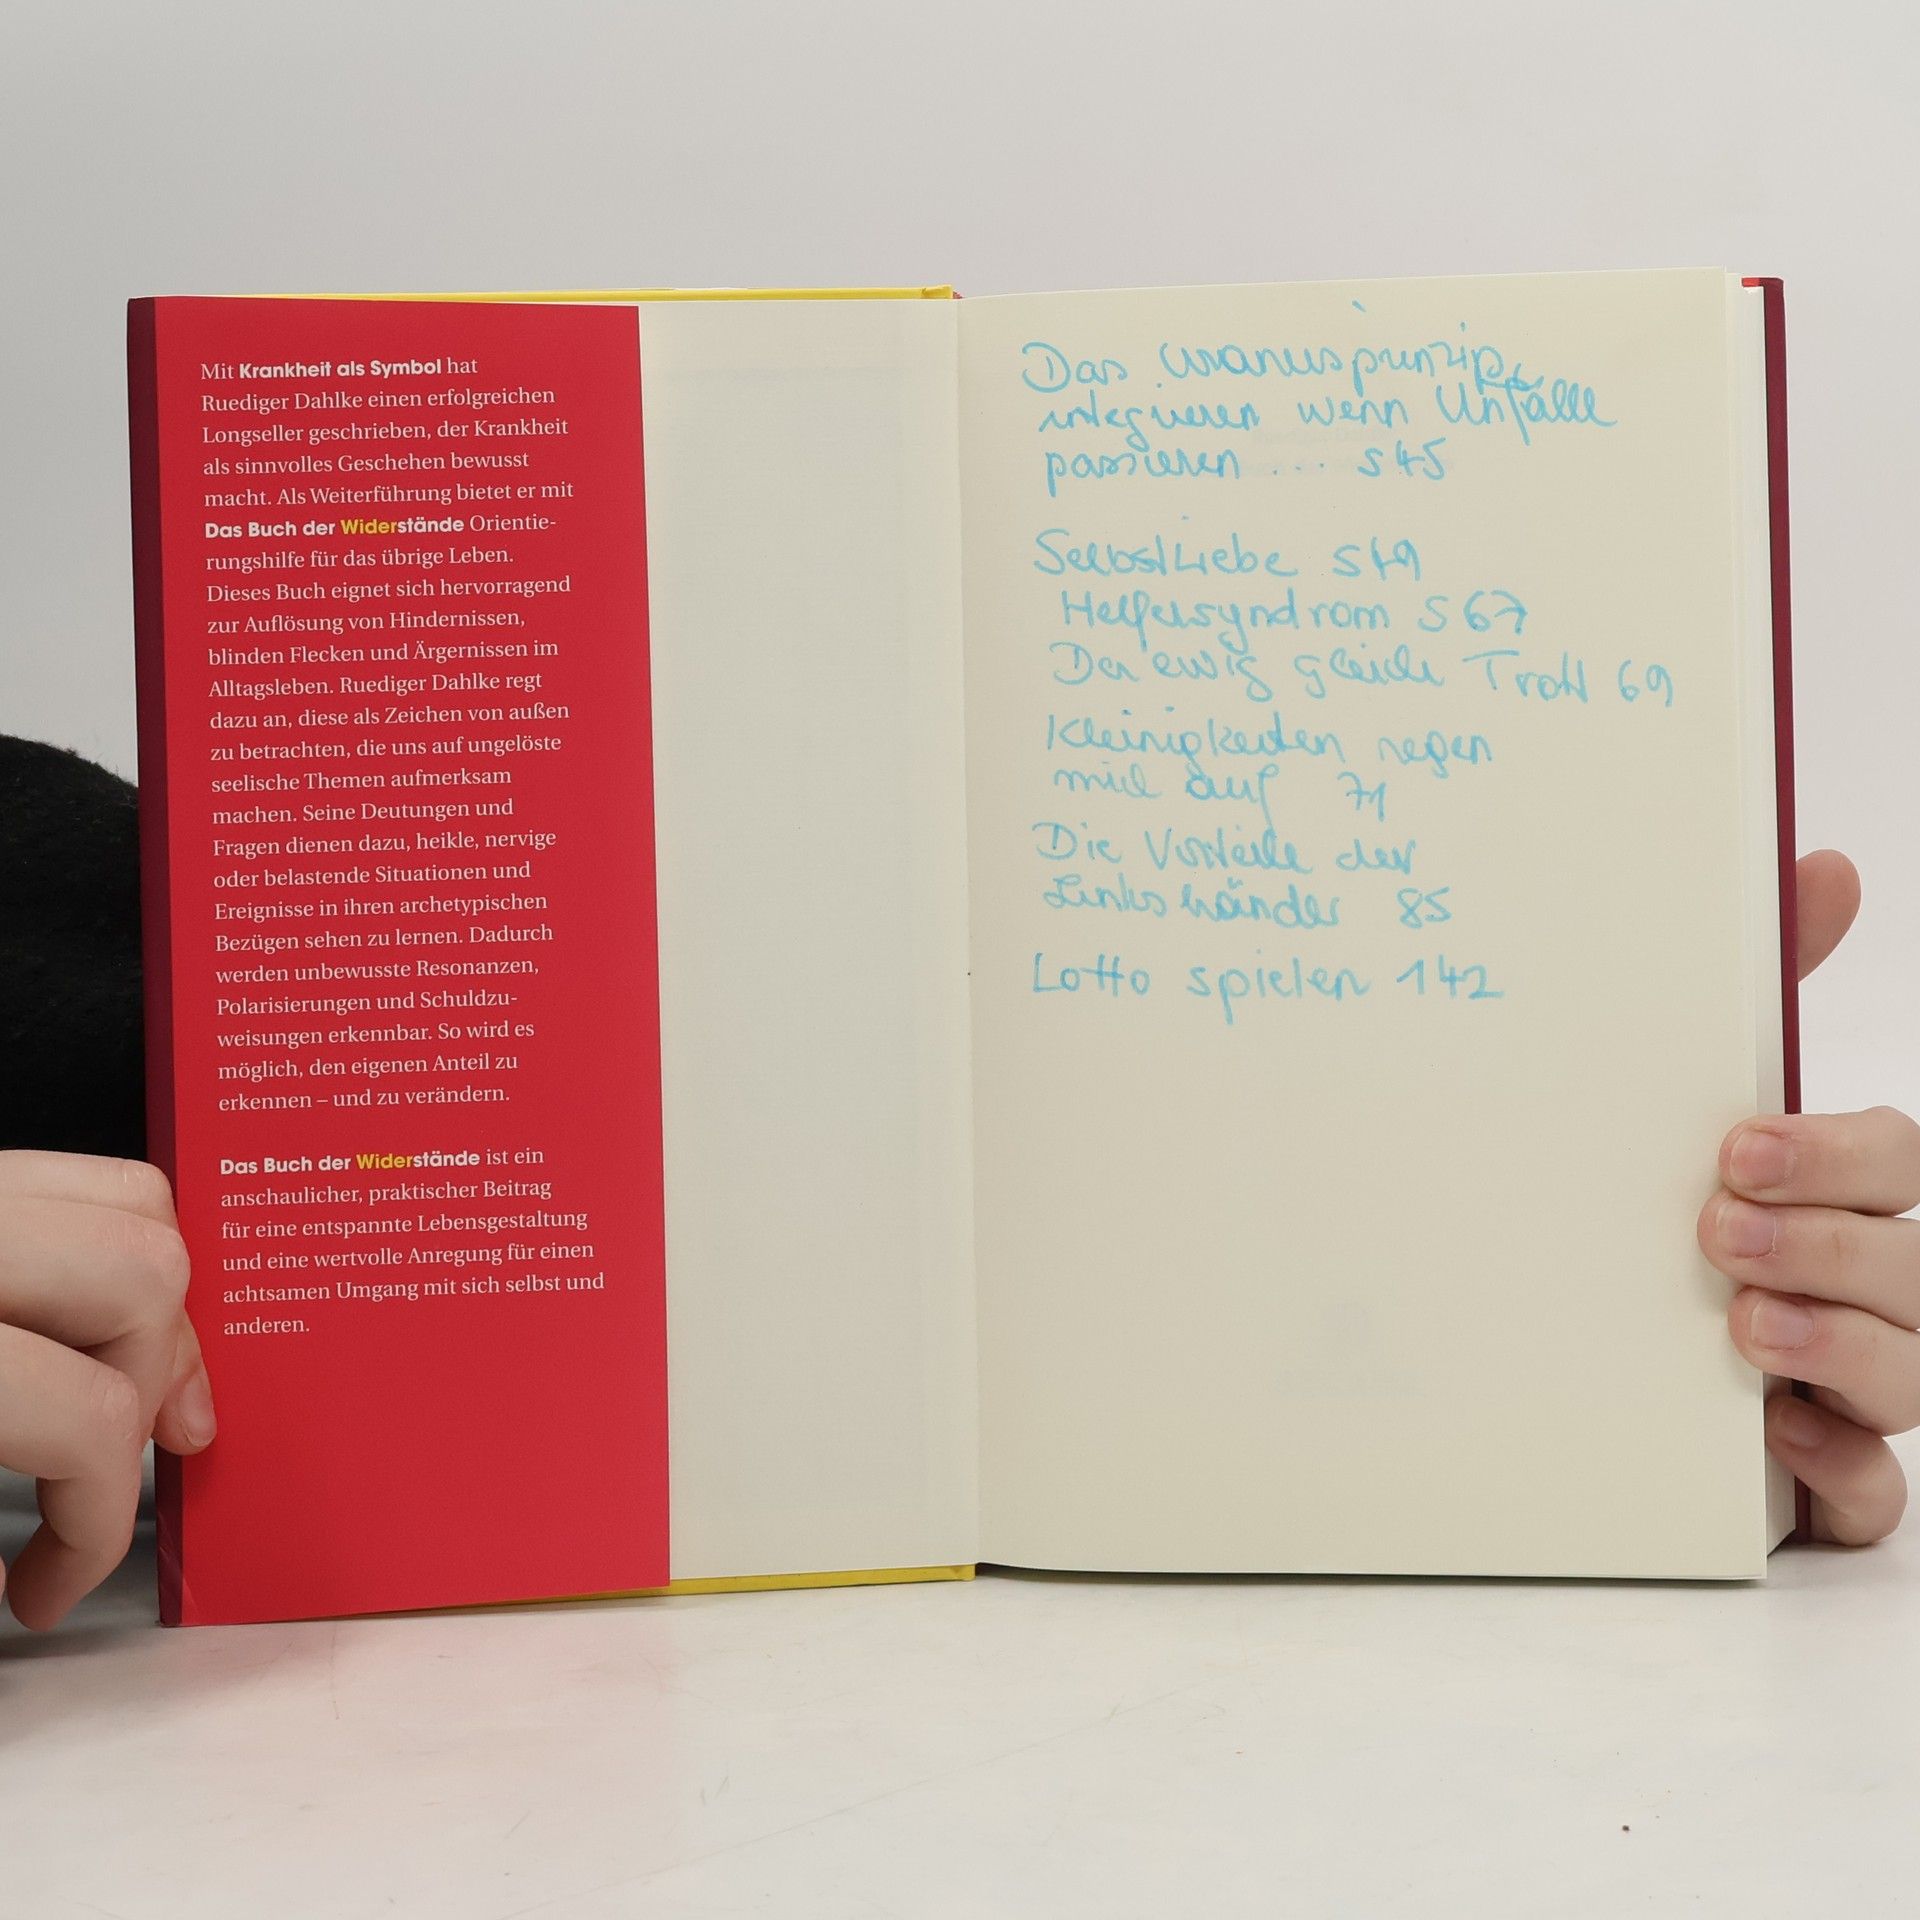 Mit Krankheit als Symbol hat
Ruediger Dahlke einen erfolgreichen
Longseller geschrieben, der Krankheit
als sinnvolles Geschehen bewusst
macht. Als Weiterführung bietet er mit
Das Buch der Widerstände Orientie-
rungshilfe für das übrige Leben.
Dieses Buch eignet sich hervorragend
zur Auflösung von Hindernissen,
blinden Flecken und Ärgernissen im
Alltagsleben. Ruediger Dahlke regt
dazu an, diese als Zeichen von außen
zu betrachten, die uns auf ungelöste
seelische Themen aufmerksam
machen. Seine Deutungen und
Fragen dienen dazu, heikle, nervige
oder belastende Situationen und
Ereignisse in ihren archetypischen
Bezügen sehen zu lernen. Dadurch
werden unbewusste Resonanzen,
Polarisierungen und Schuldzu-
weisungen erkennbar. So wird es
möglich, den eigenen Anteil zu
erkennen – und zu verändern.
Das Buch der Widerstände ist ein
anschaulicher, praktischer Beitrag
für eine entspannte Lebensgestaltung
und eine wertvolle Anregung für einen
achtsamen Umgang mit sich selbst und
anderen.
Das Uranusprinzip
integrieren wenn Unfälle
passieren ... S 45
Selbstliebe S 49
Helfersyndrom S 67
Der ewig gleiche Trott 69
Kleinigkeiten regen
mich auf 71
Die Vorteile der
Linkshänder 85
Lotto spielen 142